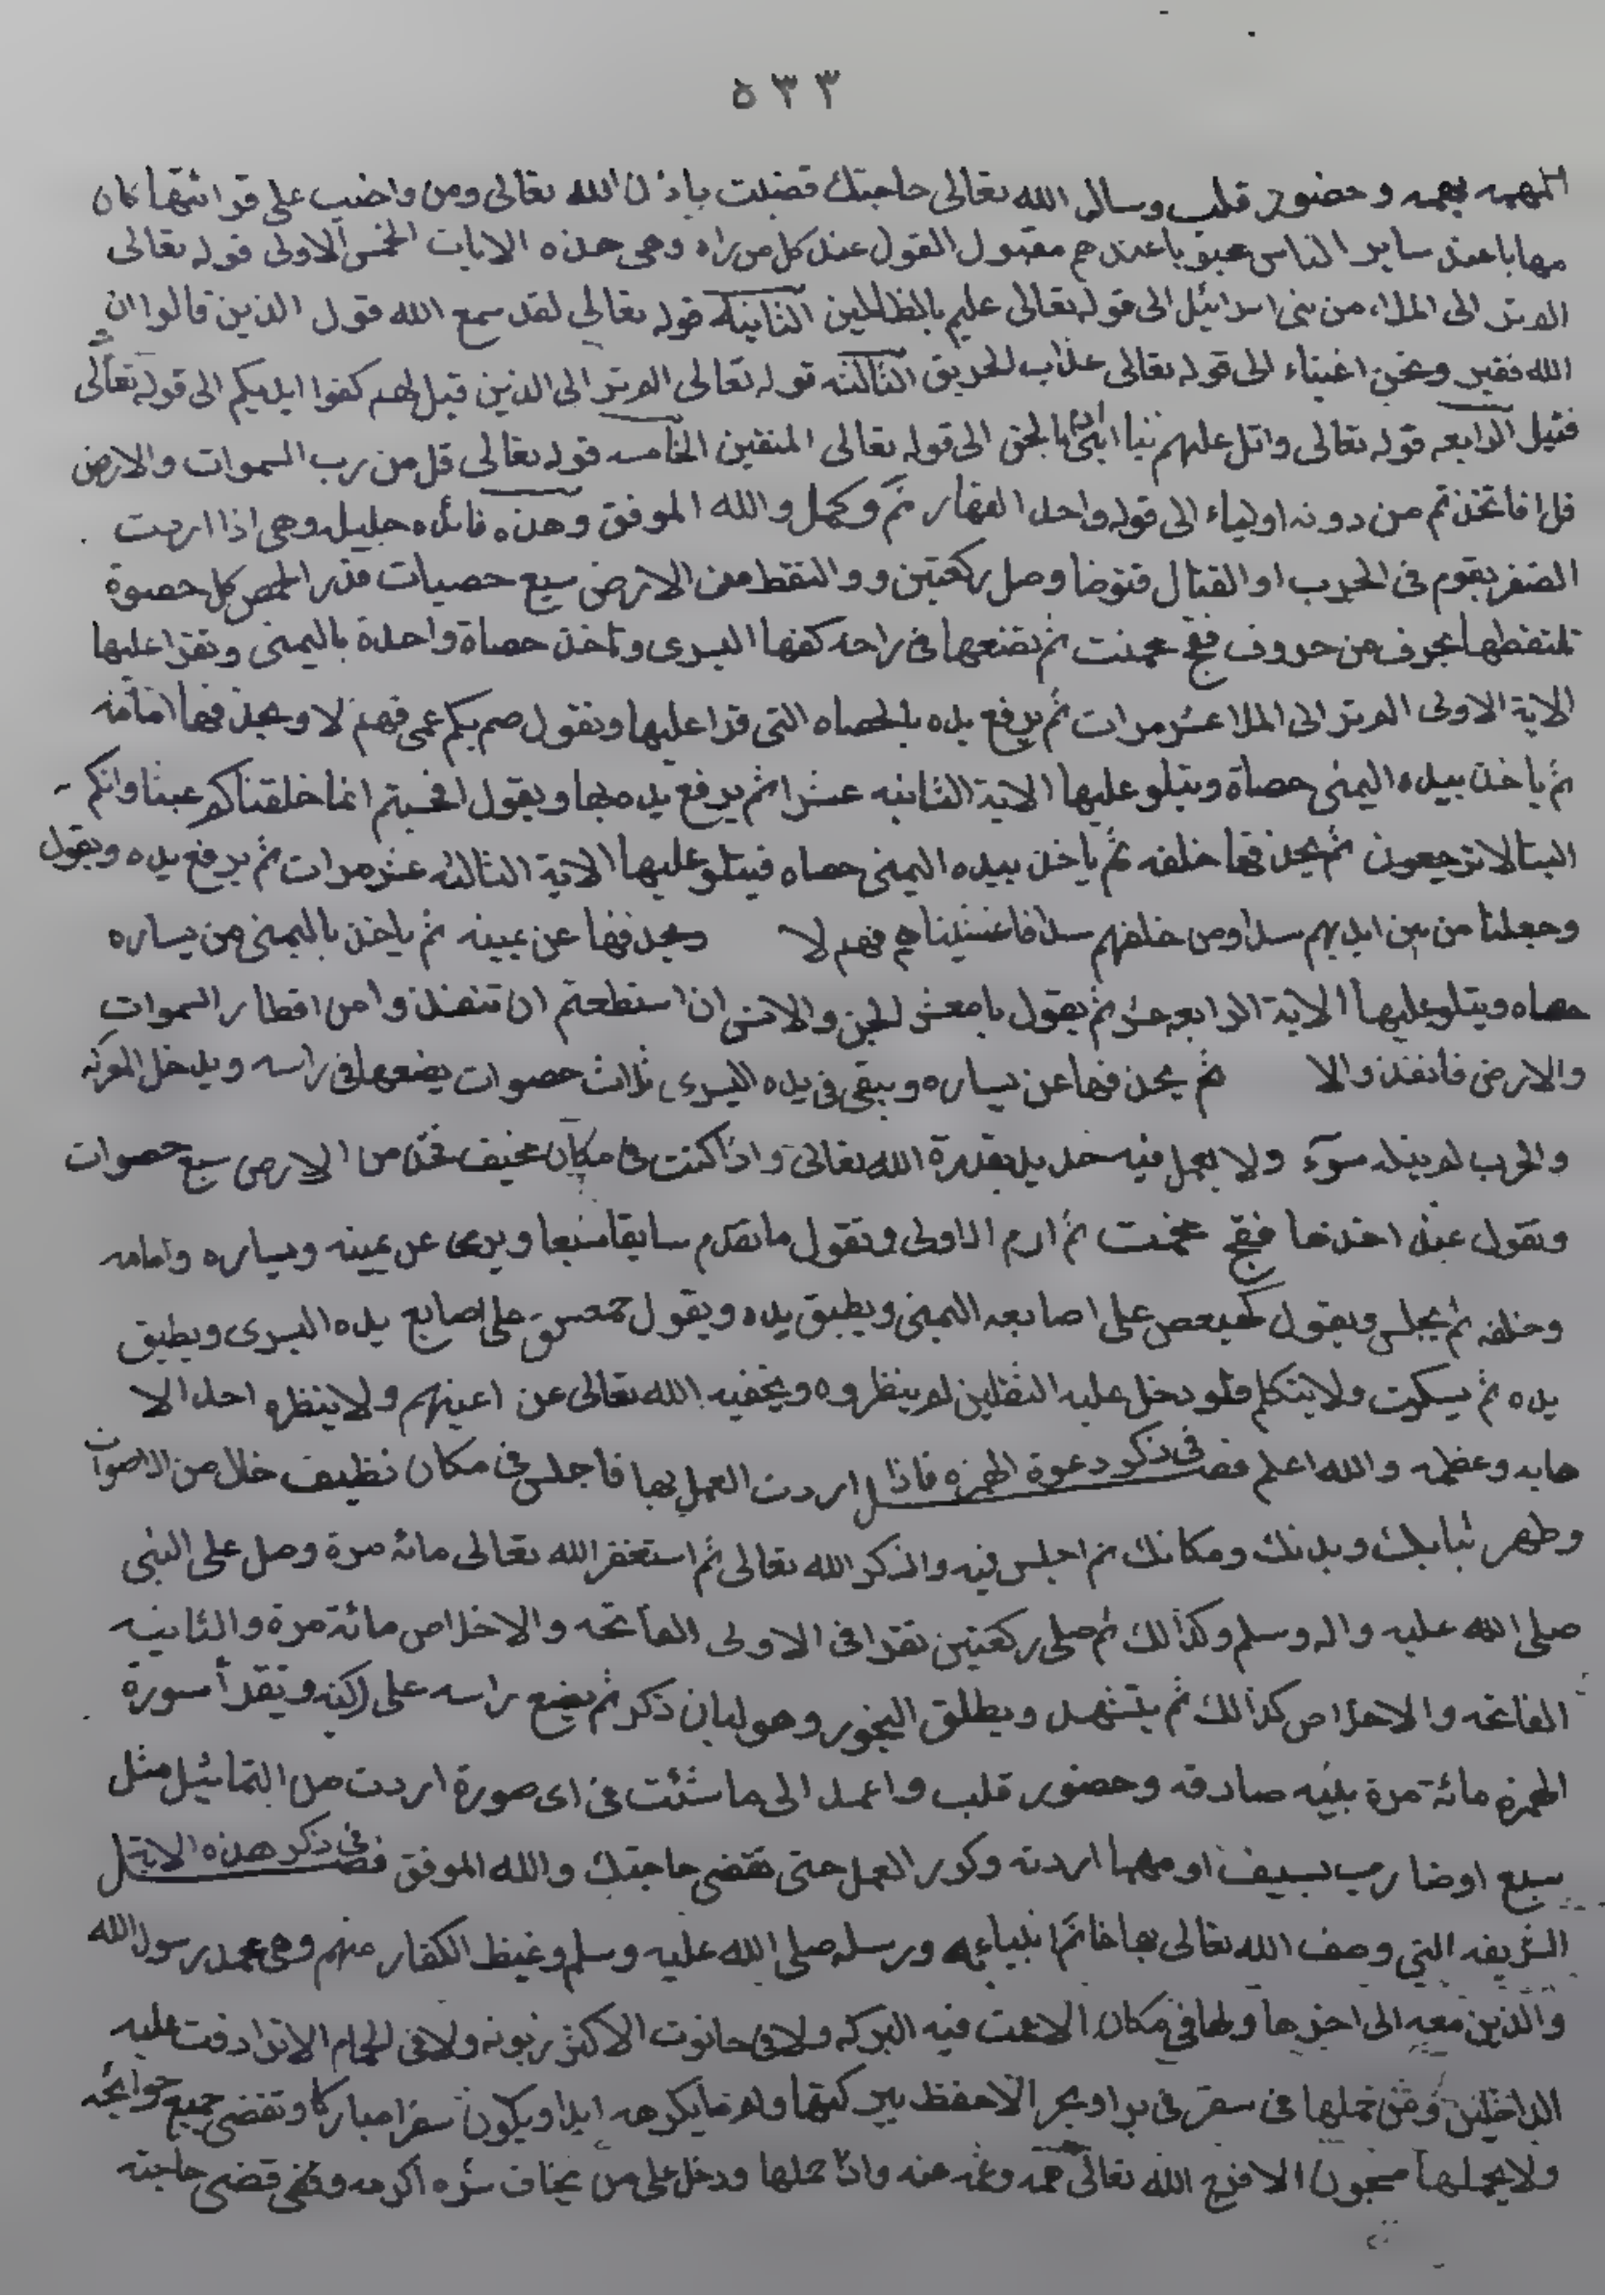 ٥٣٣
المهمه بهمه وحضور قلب وسال الله تعالى حاجتك قضيت باذن الله تعالى ومن واضب على قرائتها كان
مهابا عند ساير الناس محبوبا عندهم مقبول القول عند كل من راه وهى هذه الايات الخمس الاولى قوله تعالى
الم تر الى الملاء من بنى اسرائيل الى قوله تعالى عليم بالظالمين الثانية قوله تعالى لقد سمع الله قول الذين قالوا ان
الله فقير ونحن اغنياء الى قوله تعالى عذاب الحريق الثالثه قوله تعالى الم تر الى الذين قيل لهم كفوا ايديكم الى قوله تعالى
فتيل الرابعه قوله تعالى واتل عليهم نبا ابنى بالحق الى قوله تعالى المتقين الخامسه قوله تعالى قل من رب السموات والارض
قل افاتخذتم من دونه اولياء الى قوله واحد القهار تم وكمل والله الموفق وهذه فائده جليله وهى اذا اردت
الضفر بقوم فى الحرب او القتال فتوضا وصل ركعتين و والتقط من الارض سبع حصيات قدر الحمص كل حصوة
تلتقطها بحرف من حروف فقج مخمت ثم تضعها فى راحه كفها اليسرى وتاخذ حصاة واحدة باليمنى وتقرا عليها
الاية الاولى الم تر الى الملا عشر مرات ثم يرفع يده بالحصاه التى قرا عليها ويقول صم بكم عمى فهم لا ويحذفها امامه
ثم ياخذ بيده اليمنى حصاة ويتلو عليها الاية الثانيه عشرا ثم يرفع يده بها ويقول افحسبتم انما خلقناكم عبثا وانكم
الينا لا ترجعون ثم يحذفها خلفه ثم ياخذ بيده اليمنى حصاه فيتلو عليها الاية الثالثه عشر مرات ثم يرفع يده ويقول
وجعلنا من بين ايديهم سدا ومن خلفهم سدا فاغشيناهم فهم لا ويحذفها عن يمينه ثم ياخذ باليمنى من يساره
حصاه ويتلو عليها الاية الرابعه عشر ثم يقول يا معشر الجن والانس ان استطعتم ان تنفذوا من اقطار السموات
والارض فانفذوا لا ثم يحذفها عن يساره ويبقى فى يده اليسرى ثلاث حصوات يضعها فى راسه ويدخل المعركه
والحرب لم ينله سوء ولا يعمل فيه حديد بقدرة الله تعالى واذا كنت فى مكان مخيف فخذ من الارض سبع حصوات
وتقول عند اخذها فقج مخمت ثم ارم الاولى وتقول ما تقدم سابقا سبعا ويرمى عن يمينه ويساره وامامه
وخلفه ثم يجلس ويقول كهيعص على اصابعه اليمنى ويطبق يده ويقول حمعسق على اصابع يده اليسرى ويطبق
يده ثم يسكت ولا يتكلم فلو دخل عليه الثقلين لم ينظروه ويخفيه الله تعالى عن اعينهم ولا ينظره احد الا
هابه وعظمه والله اعلم فصل فى ذكر دعوة الهمزه فاذا اردت العمل بها فاجلس فى مكان نظيف خال من الاصوات
وطهر ثيابك وبدنك ومكانك ثم اجلس فيه واذكر الله تعالى ثم استغفر الله تعالى مائه مرة وصل على النبى
صلى الله عليه واله وسلم وكذالك ثم صلى ركعتين تقرا فى الاولى الفاتحه والاخلاص مائة مرة والثانيه
الفاتحه والاخلاص كذالك ثم يتشهد ويطلق البخور وهو لبان ذكر ثم يضع راسه على ركبته ويقرأ سورة
الهمزه مائة مرة بنيه صادقه وحضور قلب واعمد الى ما شئت فى اى صورة اردت من التماثيل مثل
سبع او ضارب بسيف او مهما اردته وكرر العمل حتى تقضى حاجتك والله الموفق فصل فى ذكر هذه الاية
الشريفه التى وصف الله تعالى بها خاتم انبياءه ورسله صلى الله عليه وسلم وغيظ الكفار منهم وهى محمد رسول الله
والذين معه الى اخرها ولها فى مكان الا عمت فيه البركه ولا فى حانوت الا كثر زبونه ولا فى الحمام الا ترادفت عليه
الداخلين ومن حملها فى سفر فى بر او بحر الا حفظ ببركتها ولم ير ما يكرهه ابدا ويكون سفرا مباركا وتقضى جميع حوائجه
ولا يحملها مسجون الا فرج الله تعالى همه وغمه عنه واذا حملها ودخل على من يخاف شره اكرمه وقضى حاجته